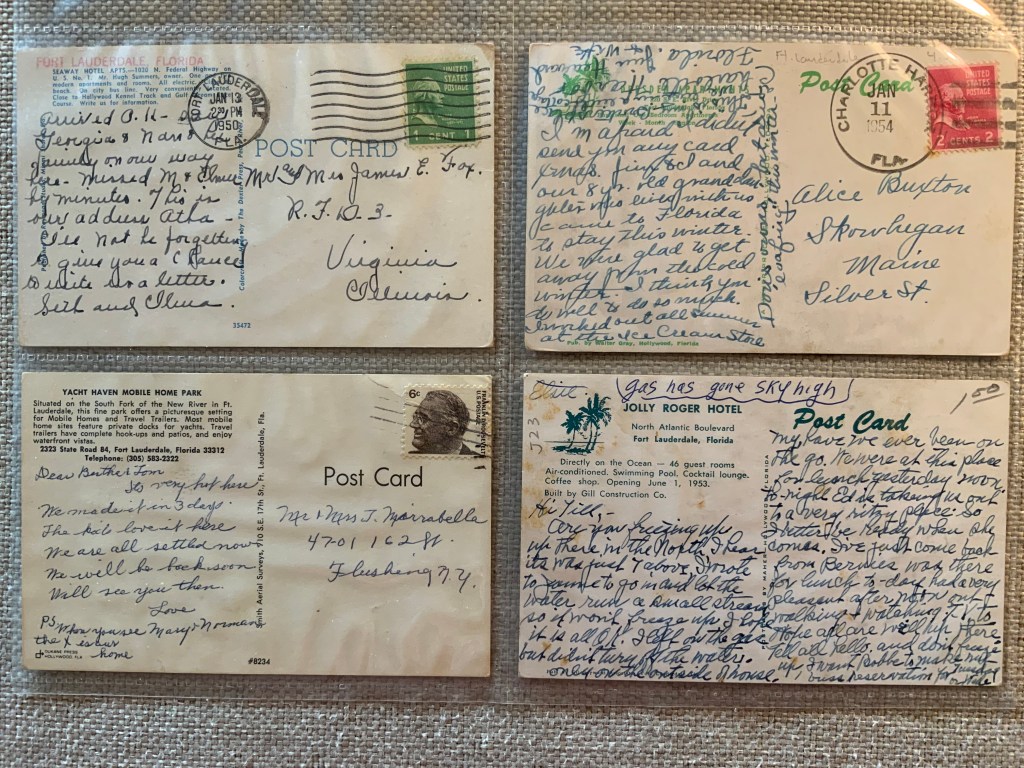 FORT LAUDERDALE, FLORIDA
SEAWAY HOTEL APTS—1030 N. Federal Highway on
U. S. No. 1. Mr. Hugh Summers, owner. One
modern apartments and rooms. All electric,
beach. On city bus line. Very convenient
Close to Hollywood Kennel Track and Gulf
Course. Write us for information.
FORT LAUDERDALE
JAN 13
2 PM
1950
FLA
UNITED STATES POSTAGE
1 CENT 1
POST CARD
Arrived O.K.
Georgia & Nan's
family on our way
here. Missed M & Elmer
by minutes. This is
our address
not be forgotten
give you a chance
to write us a letter.
Seth and Elma.
Mr and Mrs James E. Fox.
R.F.D. 3.
Virginia
Illinois.
35472
Post Card
CHARLOTTE HAR
JAN
11
1954
FLA
UNITED STATES POSTAGE
2 CENTS 2
I'm afraid I didn't
send you any card
Xmas. Jim & I and
our 8 yr. old granddau
ghter who lives with us
came to Florida
to stay this winter.
We were glad to get
away from the cold
winter. I think you
do well to do so much.
I worked out all summer
at the Ice Cream Store
this winter?
Alice Buxton
Skowhegan
Maine
Silver St.
Pub. by Walter Gray, Hollywood, Florida
YACHT HAVEN MOBILE HOME PARK
Situated on the South Fork of the New River in Ft.
Lauderdale, this fine park offers a picturesque setting
for Mobile Homes and Travel Trailers. Most mobile
home sites feature private docks for yachts. Travel
trailers have complete hook-ups and patios, and enjoy
waterfront vistas.
2323 State Road 84, Fort Lauderdale, Florida 33312
Telephone: (305) 583-2322
6c
Post Card
Dear Bertha & Tom
Its very hot here
We made it in 3 days
The kids love it here
We are all settled now
We will be back soon
Will see you then.
Love
PS When you see Mary & Norman
home
Smith Aerial Surveys, 710 S.E. 17th St., Ft. Lauderdale, Fla.
Mr & Mrs J. Mirrabella
47-01 162 St.
Flushing N.Y.
DUKANE PRESS
HOLLYWOOD, FLA.
#8234
Elite
gas has gone sky high
1.50
523
JOLLY ROGER HOTEL
North Atlantic Boulevard
Fort Lauderdale, Florida
Directly on the Ocean — 46 guest rooms
Air-conditioned. Swimming Pool. Cocktail lounge.
Coffee shop. Opening June 1, 1953.
Built by Gill Construction Co.
Post Card
Hi Till,-
Are you freezing up
up there in the North, I hear
its was just 7 above. I wrote
to to go in and let the
water run a small stream
so it won't freeze up. I hope
it is all O.K. I left on the gas
but didn't turn off the water.
only on the outside of house.
My have we ever been on
the go. We were at this place
for lunch yesterday noon
to-night Ed is taking us out
to a very ritzy place. So
better be ready when she
comes. I've just come back
from Bernies was there
for lunch to-day, had a very
pleasant after noon out
walking & watching T.V.
Hope all are well up there
tell all hello, and don't freeze
up. I want Bobbe to make my
bus reservation for